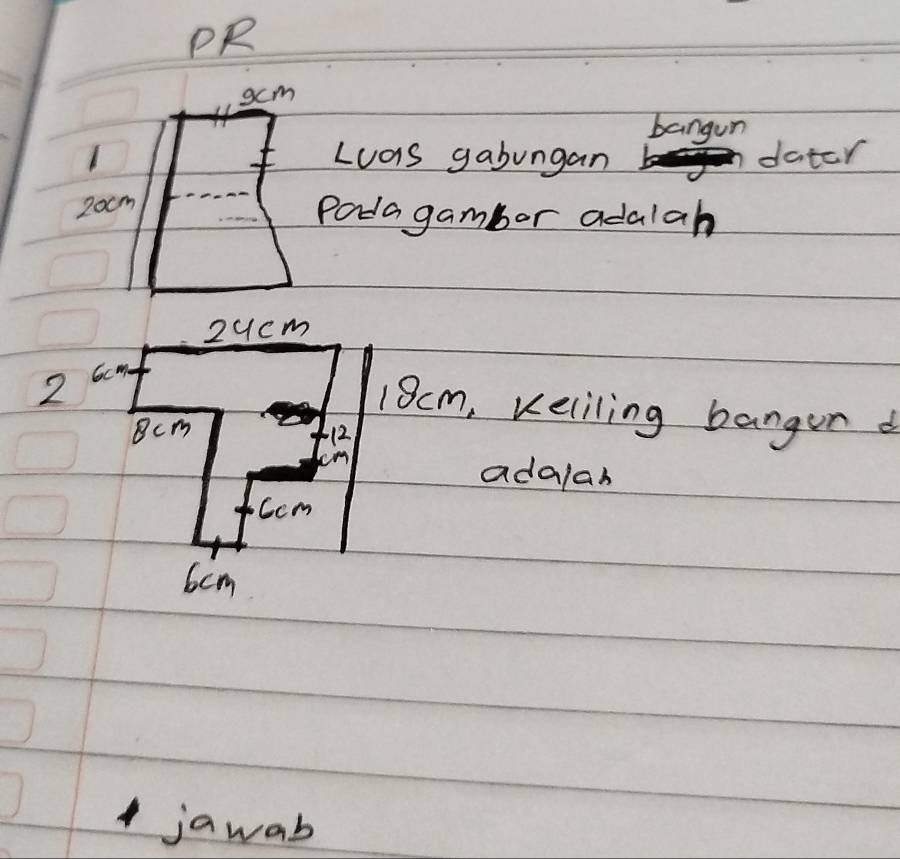 PR
9cm
1
20cm
Luas gabungan bangun datar
Pada gambar adalah
24cm
2
6cm
8cm
12
cm
6cm
6cm
18cm. Keliling bangun d
adalah
jawab